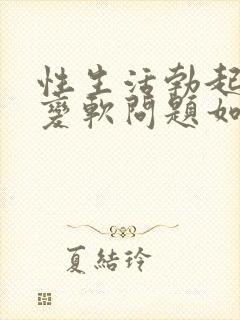 性生活勃起
变軟問題如
夏結玲